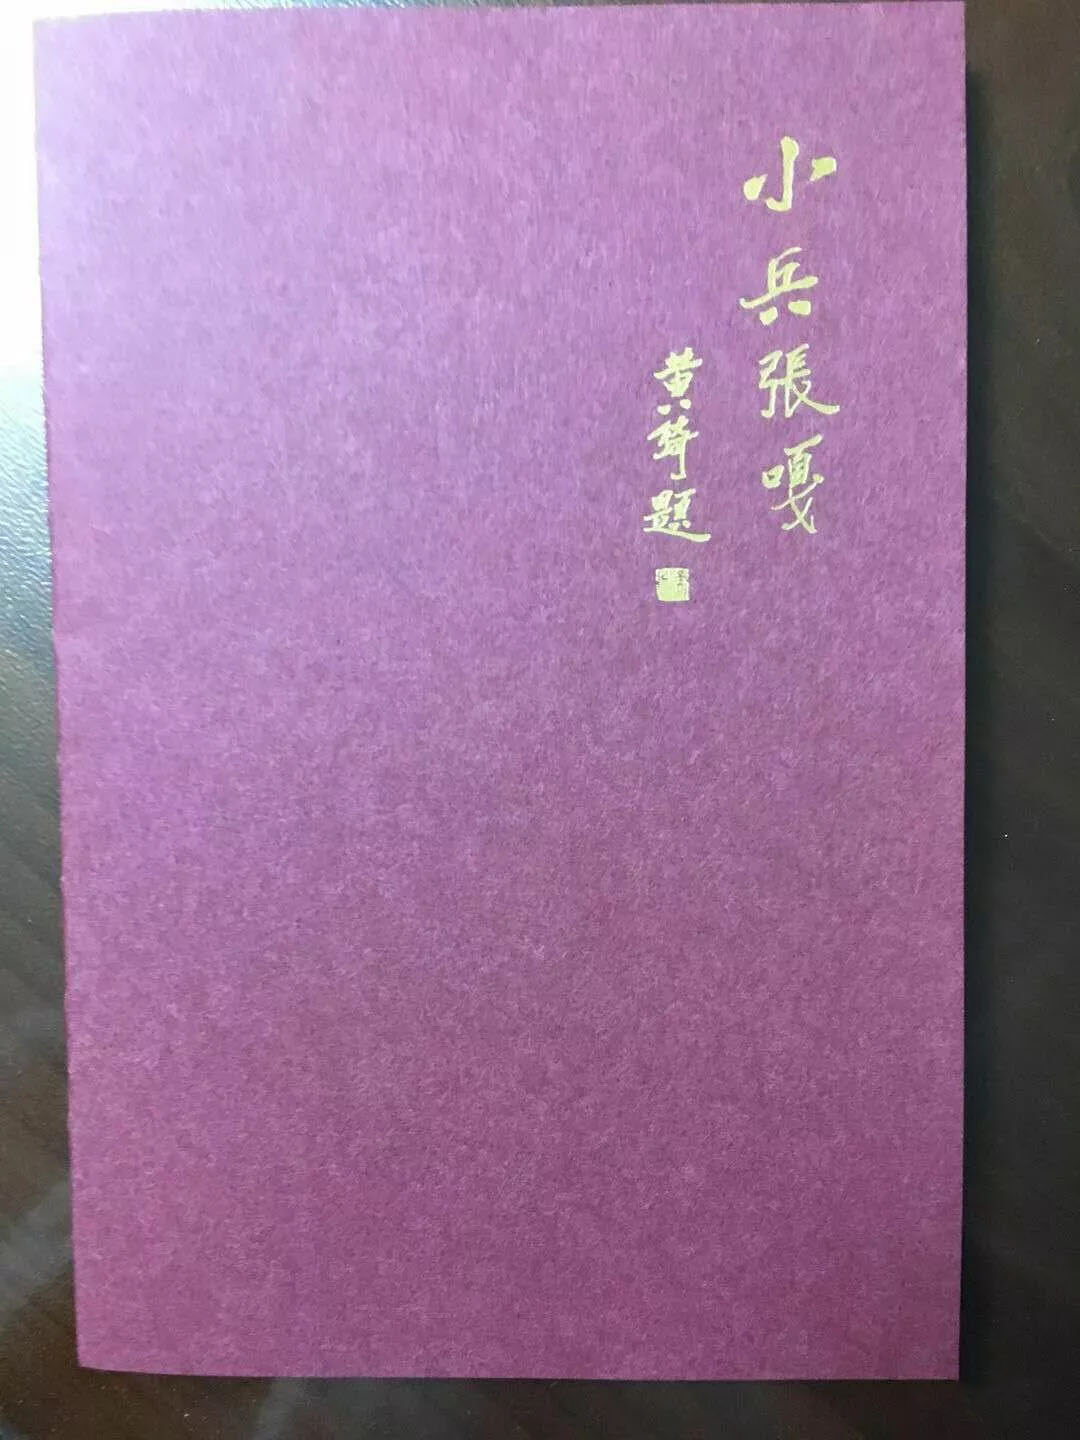 小兵張嘎
黄 題